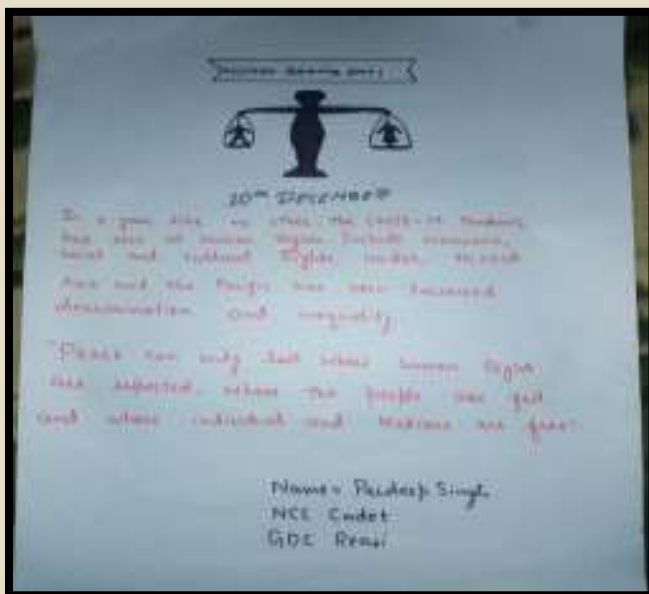 HUMAN RIGHTS DAY
10TH DECEMBER
In a year like no other, the COVID-19 Pandemic
has seen all Human Rights include economic,
social and cultural Rights, under threat
Asia and the Pacific has seen increased
discrimination and inequality.
"Peace can only last where human Right
are respected, where the people are fed
and where individual and Nations are free"
Name = Pardeep Singh
NCC Cadet
GDC Reasi